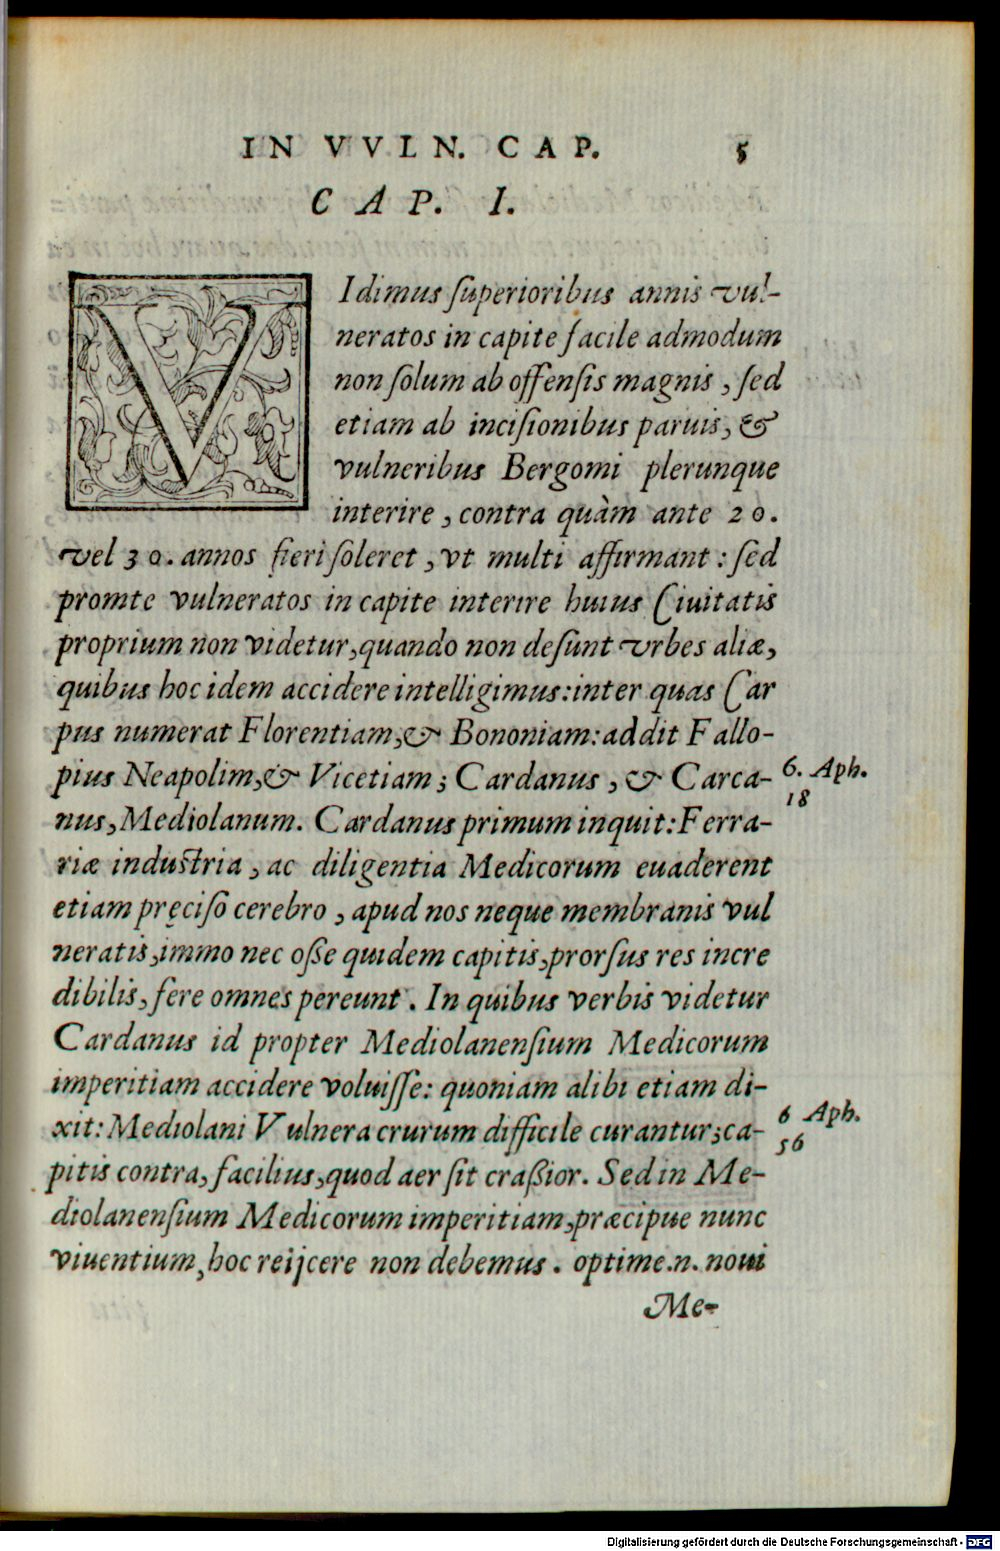 IN VVLN. CAP. 5
CAP. I.
VIdimus ſuperioribus annis vul-
neratos in capite facile admodum
non ſolum ab offenſis magnis, ſed
etiam ab inciſionibus paruis, &
vulneribus Bergomi plerunque
interire, contra quàm ante 20.
vel 30. annos fieri ſoleret, vt multi affirmant: ſed
promte vulneratos in capite interire huius Ciuitatis
proprium non videtur, quando non deſunt vrbes aliæ,
quibus hoc idem accidere intelligimus: inter quas Car
pus numerat Florentiam, & Bononiam: addit Fallo-
pius Neapolim, & Vicetiam; Cardanus, & Carca-
6. Aph.
18
nus, Mediolanum. Cardanus primum inquit: Ferra-
riæ induſtria, ac diligentia Medicorum euaderent
etiam pręciſo cerebro, apud nos neque membranis vul
neratis, immo nec oſſe quidem capitis, prorſus res incre
dibilis, fere omnes pereunt. In quibus verbis videtur
Cardanus id propter Mediolanenſium Medicorum
imperitiam accidere voluiſſe: quoniam alibi etiam di-
xit: Mediolani Vulnera crurum difficile curantur; ca-
6 Aph.
56
pitis contra, facilius, quod aer ſit craßior. Sed in Me-
diolanenſium Medicorum imperitiam, præcipue nunc
viuentium, hoc reijcere non debemus. optime.n. noui
Me-
Digitalisierung gefördert durch die Deutsche Forschungsgemeinschaft - DFG